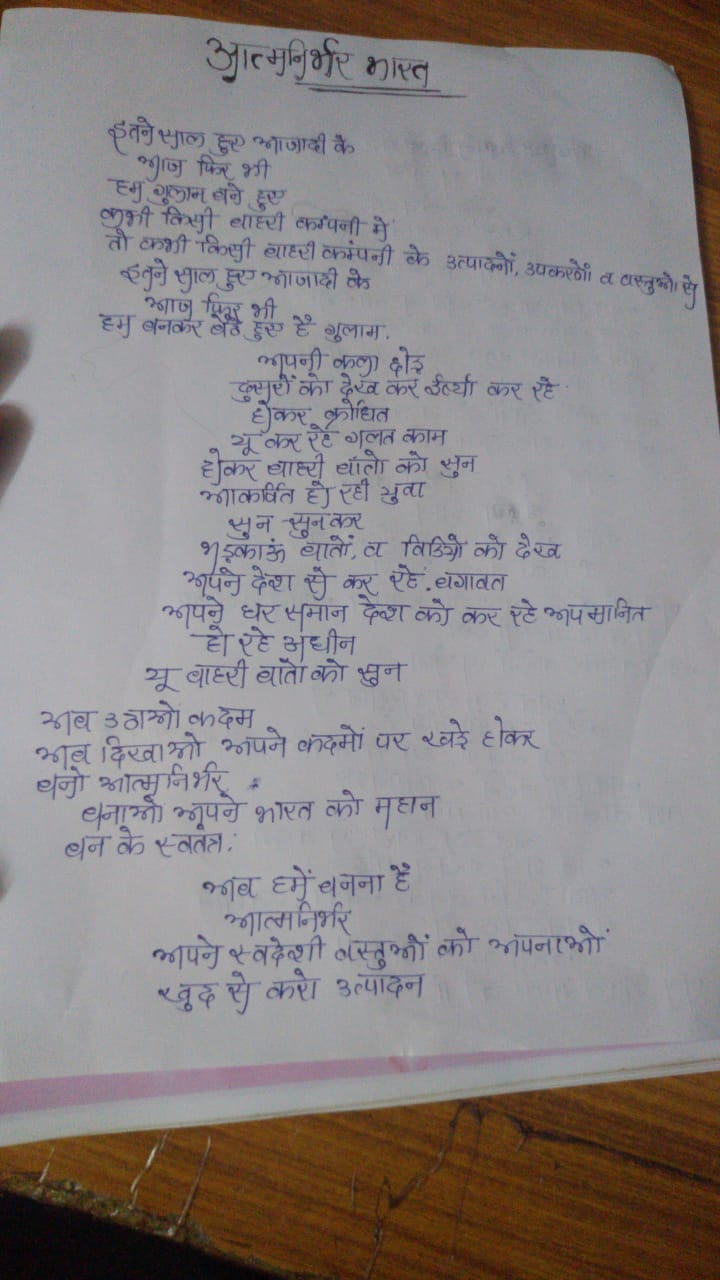 आत्मनिर्भर भारत
इतने साल हुए आजादी के
आज फिर भी
हम गुलाम बने हुए
कभी किसी बाहरी कम्पनी में
तो कभी किसी बाहरी कम्पनी के उत्पादनों, उपकरणों व वस्तुओं से
इतने साल हुए आजादी के
आज फिर भी
हम बनकर बैठे हुए है गुलाम.
अपनी कला छोड़
दुसरों को देख कर ईर्ष्या कर रहे
होकर क्रोधित
यू कर रहे गलत काम
होकर बाहरी बाँतो को सुन
आकर्षित हो रही युवा
सुन-सुनकर
भड़काऊं बातों, व विडियो को देख
अपने देश से कर रहे बगावत
अपने घर समान देश को कर रहे अपमानित
हो रहे अधीन
यू बाहरी बातो को सुन
अब उठाओं कदम
अब दिखाओ अपने कदमों पर खड़े होकर
बनो आत्मनिर्भर
बनाओ अपने भारत को महान
बन के स्वतंत्र.
अब हमें बनना है
आत्मनिर्भर
अपने स्वदेशी वस्तुओं को अपनाओं
खुद से करो उत्पादन